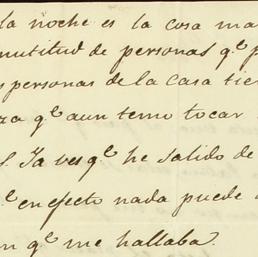 la noche es la cosa ma
multitud de personas q.e p
s personas de la Casa tie
za q.e aun temo tocar
Ya ves q.e he salido de
.e en efecto nada puede
n q.e me hallaba.